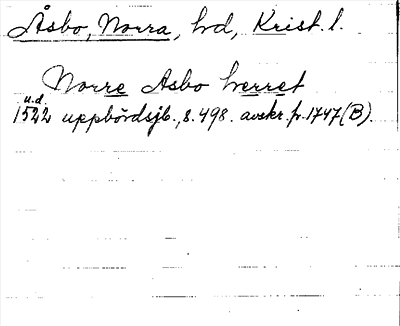 Åsbo, Norra, hd, Krist. l.
Norre Asbo herret
u.d.
1522 uppbördsjb., s. 498. avskr. fr. 1747 (B).